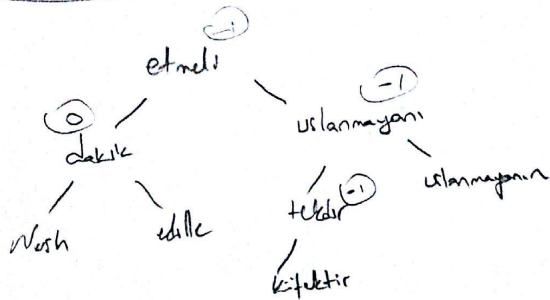 -1
etmeli
0
-1
dakik
uslanmayanı
Nush
edille
tekdir
-1
uslanmayanın
kötektir